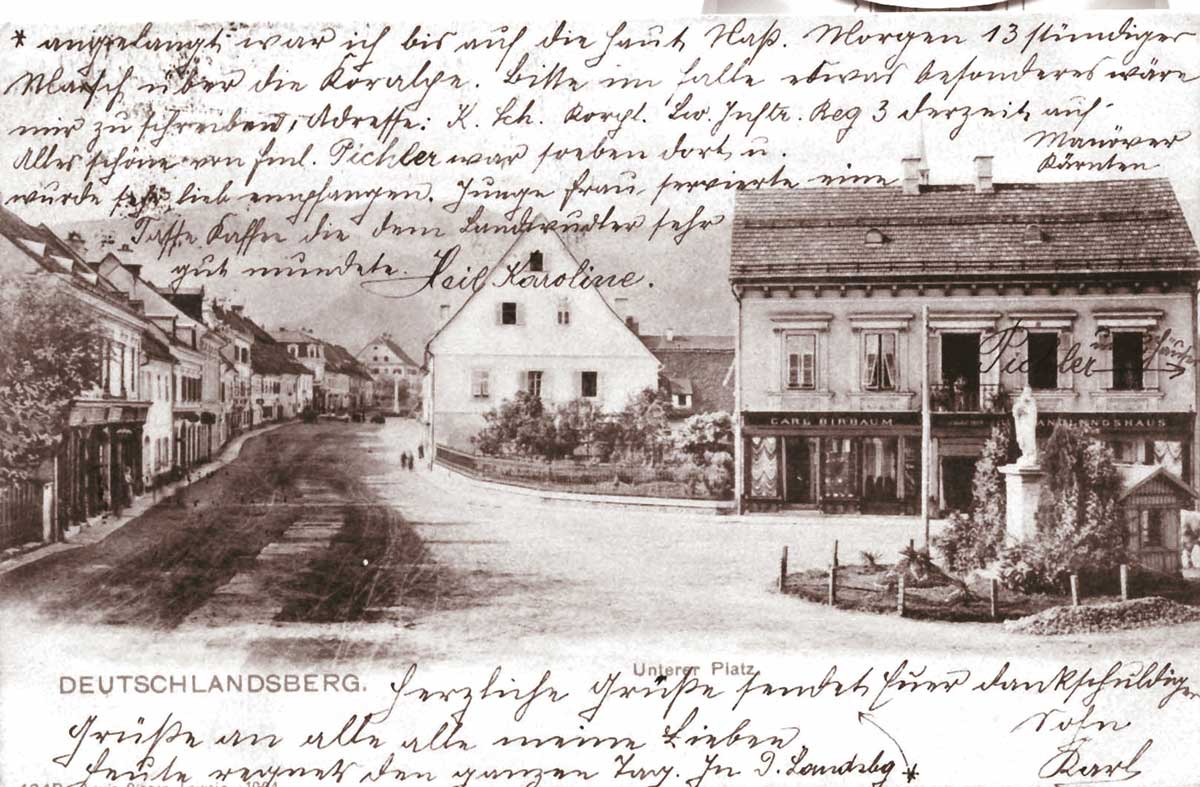 * angelangt war ich bis auf die Haut Naß. Morgen 13 stündiger
Marsch über die Koralpe. Bitte im Falle etwas besonderes wäre
mir zu schreiben, Adresse: K. k. Korpl. Lw. Inftr. Reg 3 derzeit auf
Manöver
Kärnten
Alles schöne von Fml. Pichler war soeben dort u.
wurde sehr lieb empfangen. Junge Frau servierte eine
Tasse Kaffee die dem Landwudler sehr
gut mundete. Heil Karoline.
Pichler
CARL BIRBAUM
HANDLUNGSHAUS
Unterer Platz.
DEUTSCHLANDSBERG.
Herzliche Grüße sendet Euer dankschuldiger
Sohn
Karl
Grüße an alle alle meine Lieben
Heute regnets den ganzen Tag. In D. Landsbg *
Leipzig 1904